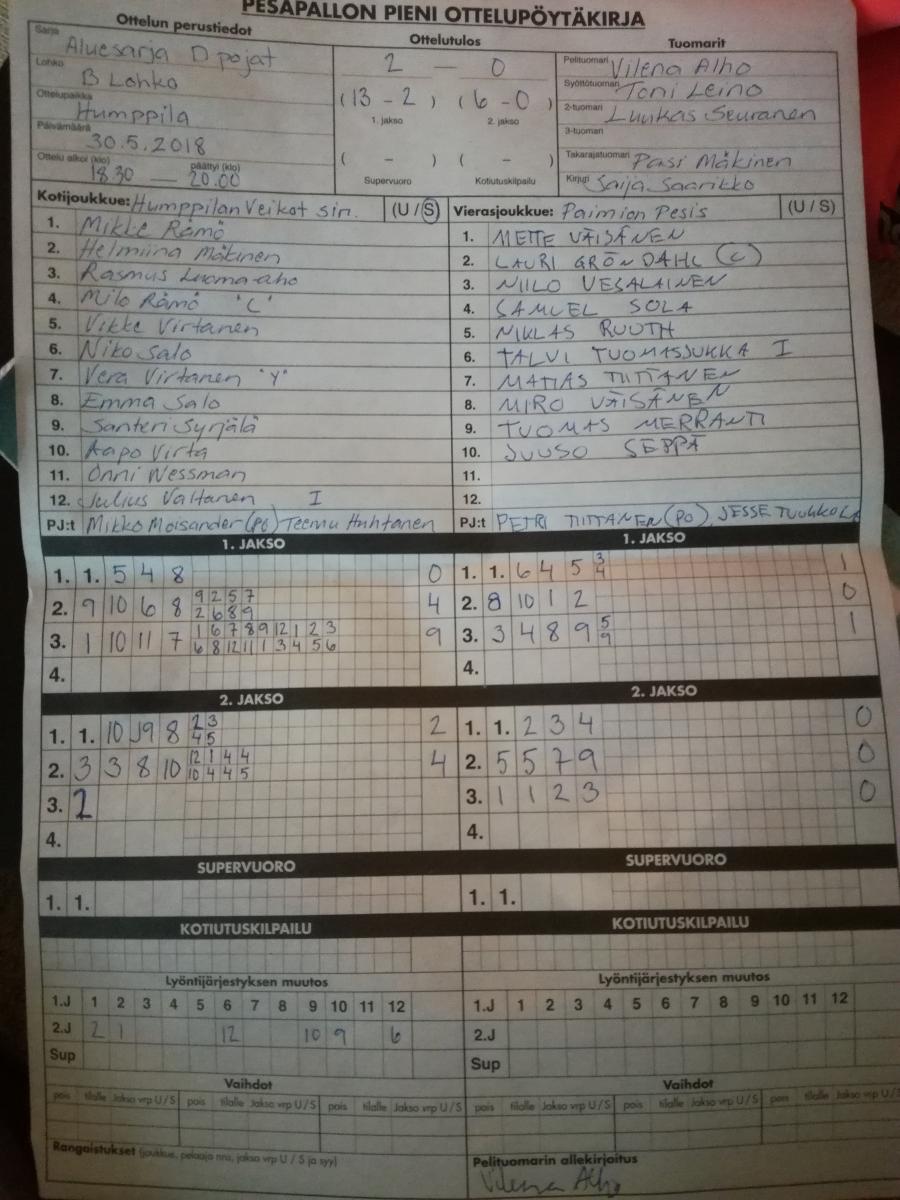 PESÄPALLON PIENI OTTELUPÖYTÄKIRJA
Ottelun perustiedot
Sarja Aluesarja D pojat
Lohko B Lohko
Ottelupaikka Humppila
Päivämäärä 30.5.2018
Ottelu alkoi (klo) 18.30 päättyi (klo) 20.00
Ottelutulos
2 — 0
(13 - 2) (6 - 0)
1. jakso 2. jakso
( - ) ( - )
Supervuoro Kotiutuskilpailu
Tuomarit
Pelituomari Vilena Alho
Syöttötuomari Toni Leino
2-tuomari Luukas Seuranen
3-tuomari
Takarajatuomari Pasi Mäkinen
Kirjuri Saija Saarikko
Kotijoukkue: Humppilan Veikot sin. (U / S)
1. Mikke Rämö
2. Helmiina Mäkinen
3. Rasmus Luoma-aho
4. Milo Rämö "C"
5. Vikke Virtanen
6. Niko Salo
7. Vera Virtanen "Y"
8. Emma Salo
9. Santeri Syrjälä
10. Aapo Virta
11. Onni Wessman
12. Julius Valtanen I
PJ:t Mikko Moisander (PO) Teemu Huhtanen
Vierasjoukkue: Paimion Pesis (U / S)
1. METTE VÄISÄNEN
2. LAURI GRÖNDAHL (C)
3. NIILO VESALAINEN
4. SAMUEL SOLA
5. NIKLAS RUUTH
6. TALVI TUOMASJUKKA I
7. MATIAS TIITTANEN
8. MIRO VÄISÄNEN
9. TUOMAS MERRANTI
10. JUUSO SEPPÄ
11.
12.
PJ:t PETRI TIITTANEN (PO), JESSE TUUKKOLA
1. JAKSO
1. 1. 5 4 8 0
2. 9 10 6 8 9 2 5 7 4
2 6 8 9
3. 1 10 11 7 1 6 7 8 9 12 1 2 3 9
6 8 12 11 1 3 4 5 6
4.
1. JAKSO
1. 1. 6 4 5 3 1
4
2. 8 10 1 2 0
3. 3 4 8 9 5 1
9
4.
2. JAKSO
1. 1. 10 9 8 2 3 2
4 5
2. 3 3 8 10 12 1 4 4 4
10 4 4 5
3. 2
4.
2. JAKSO
1. 1. 2 3 4 0
2. 5 5 7 9 0
3. 1 1 2 3 0
4.
SUPERVUORO
1. 1.
SUPERVUORO
1. 1.
KOTIUTUSKILPAILU
KOTIUTUSKILPAILU
Lyöntijärjestyksen muutos
1.J 1 2 3 4 5 6 7 8 9 10 11 12
2.J 2 1 12 10 9 6
Sup
Lyöntijärjestyksen muutos
1.J 1 2 3 4 5 6 7 8 9 10 11 12
2.J
Sup
Vaihdot
pois tilalle Jakso vrp U / S pois tilalle Jakso vrp U / S pois tilalle Jakso vrp U / S
Vaihdot
pois tilalle Jakso vrp U / S pois tilalle Jakso vrp U / S pois tilalle Jakso vrp U / S
Rangaistukset (joukkue, pelaaja nro, jakso vrp U / S ja syy)
Pelituomarin allekirjoitus
Vilena Alho